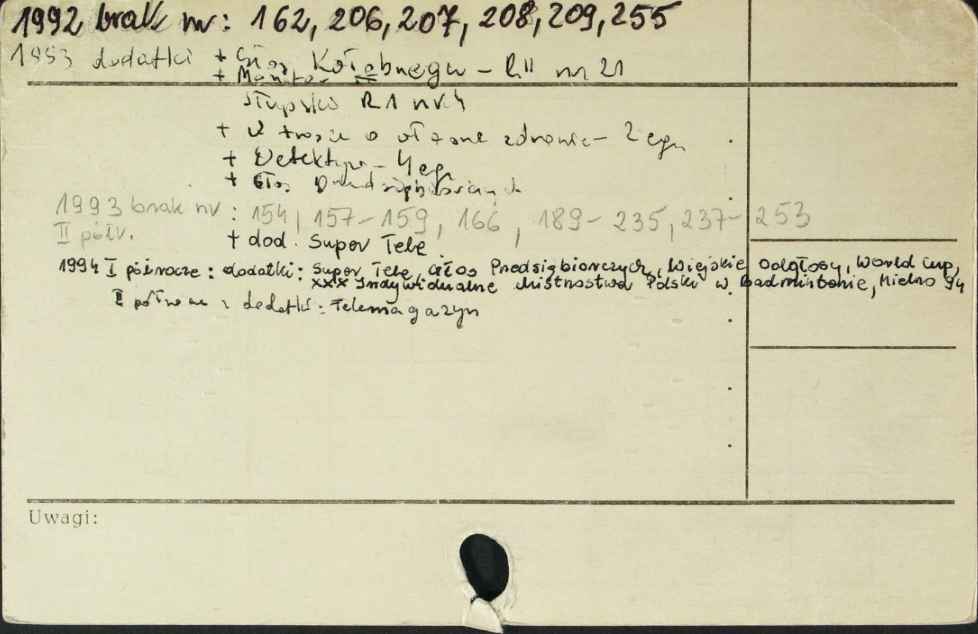 1992 brak nr: 162, 206, 207, 208, 209, 255
1993 dodatki + Głos Kołobrzegu - R II nr 21
+ Monitor
Słupska R1 nr 4
+ W trosce o zdrowie - 2 egz.
+ Detektyw - 4 egz
+ Głos Przedsiębiorczych
1993 brak nr: 154, 157-159, 166, 189-235, 237-253
II półr.
+ dod. Super Tele
1994 I półrocze: dodatki: Super Tele, Głos Przedsiębiorczych, Wiejskie Odgłosy, World Cup,
XXX Indywidualne Mistrzostwa Polski w Badmintonie, Mielno 94
II półrocze: dodatki: Telemagazyn
Uwagi: